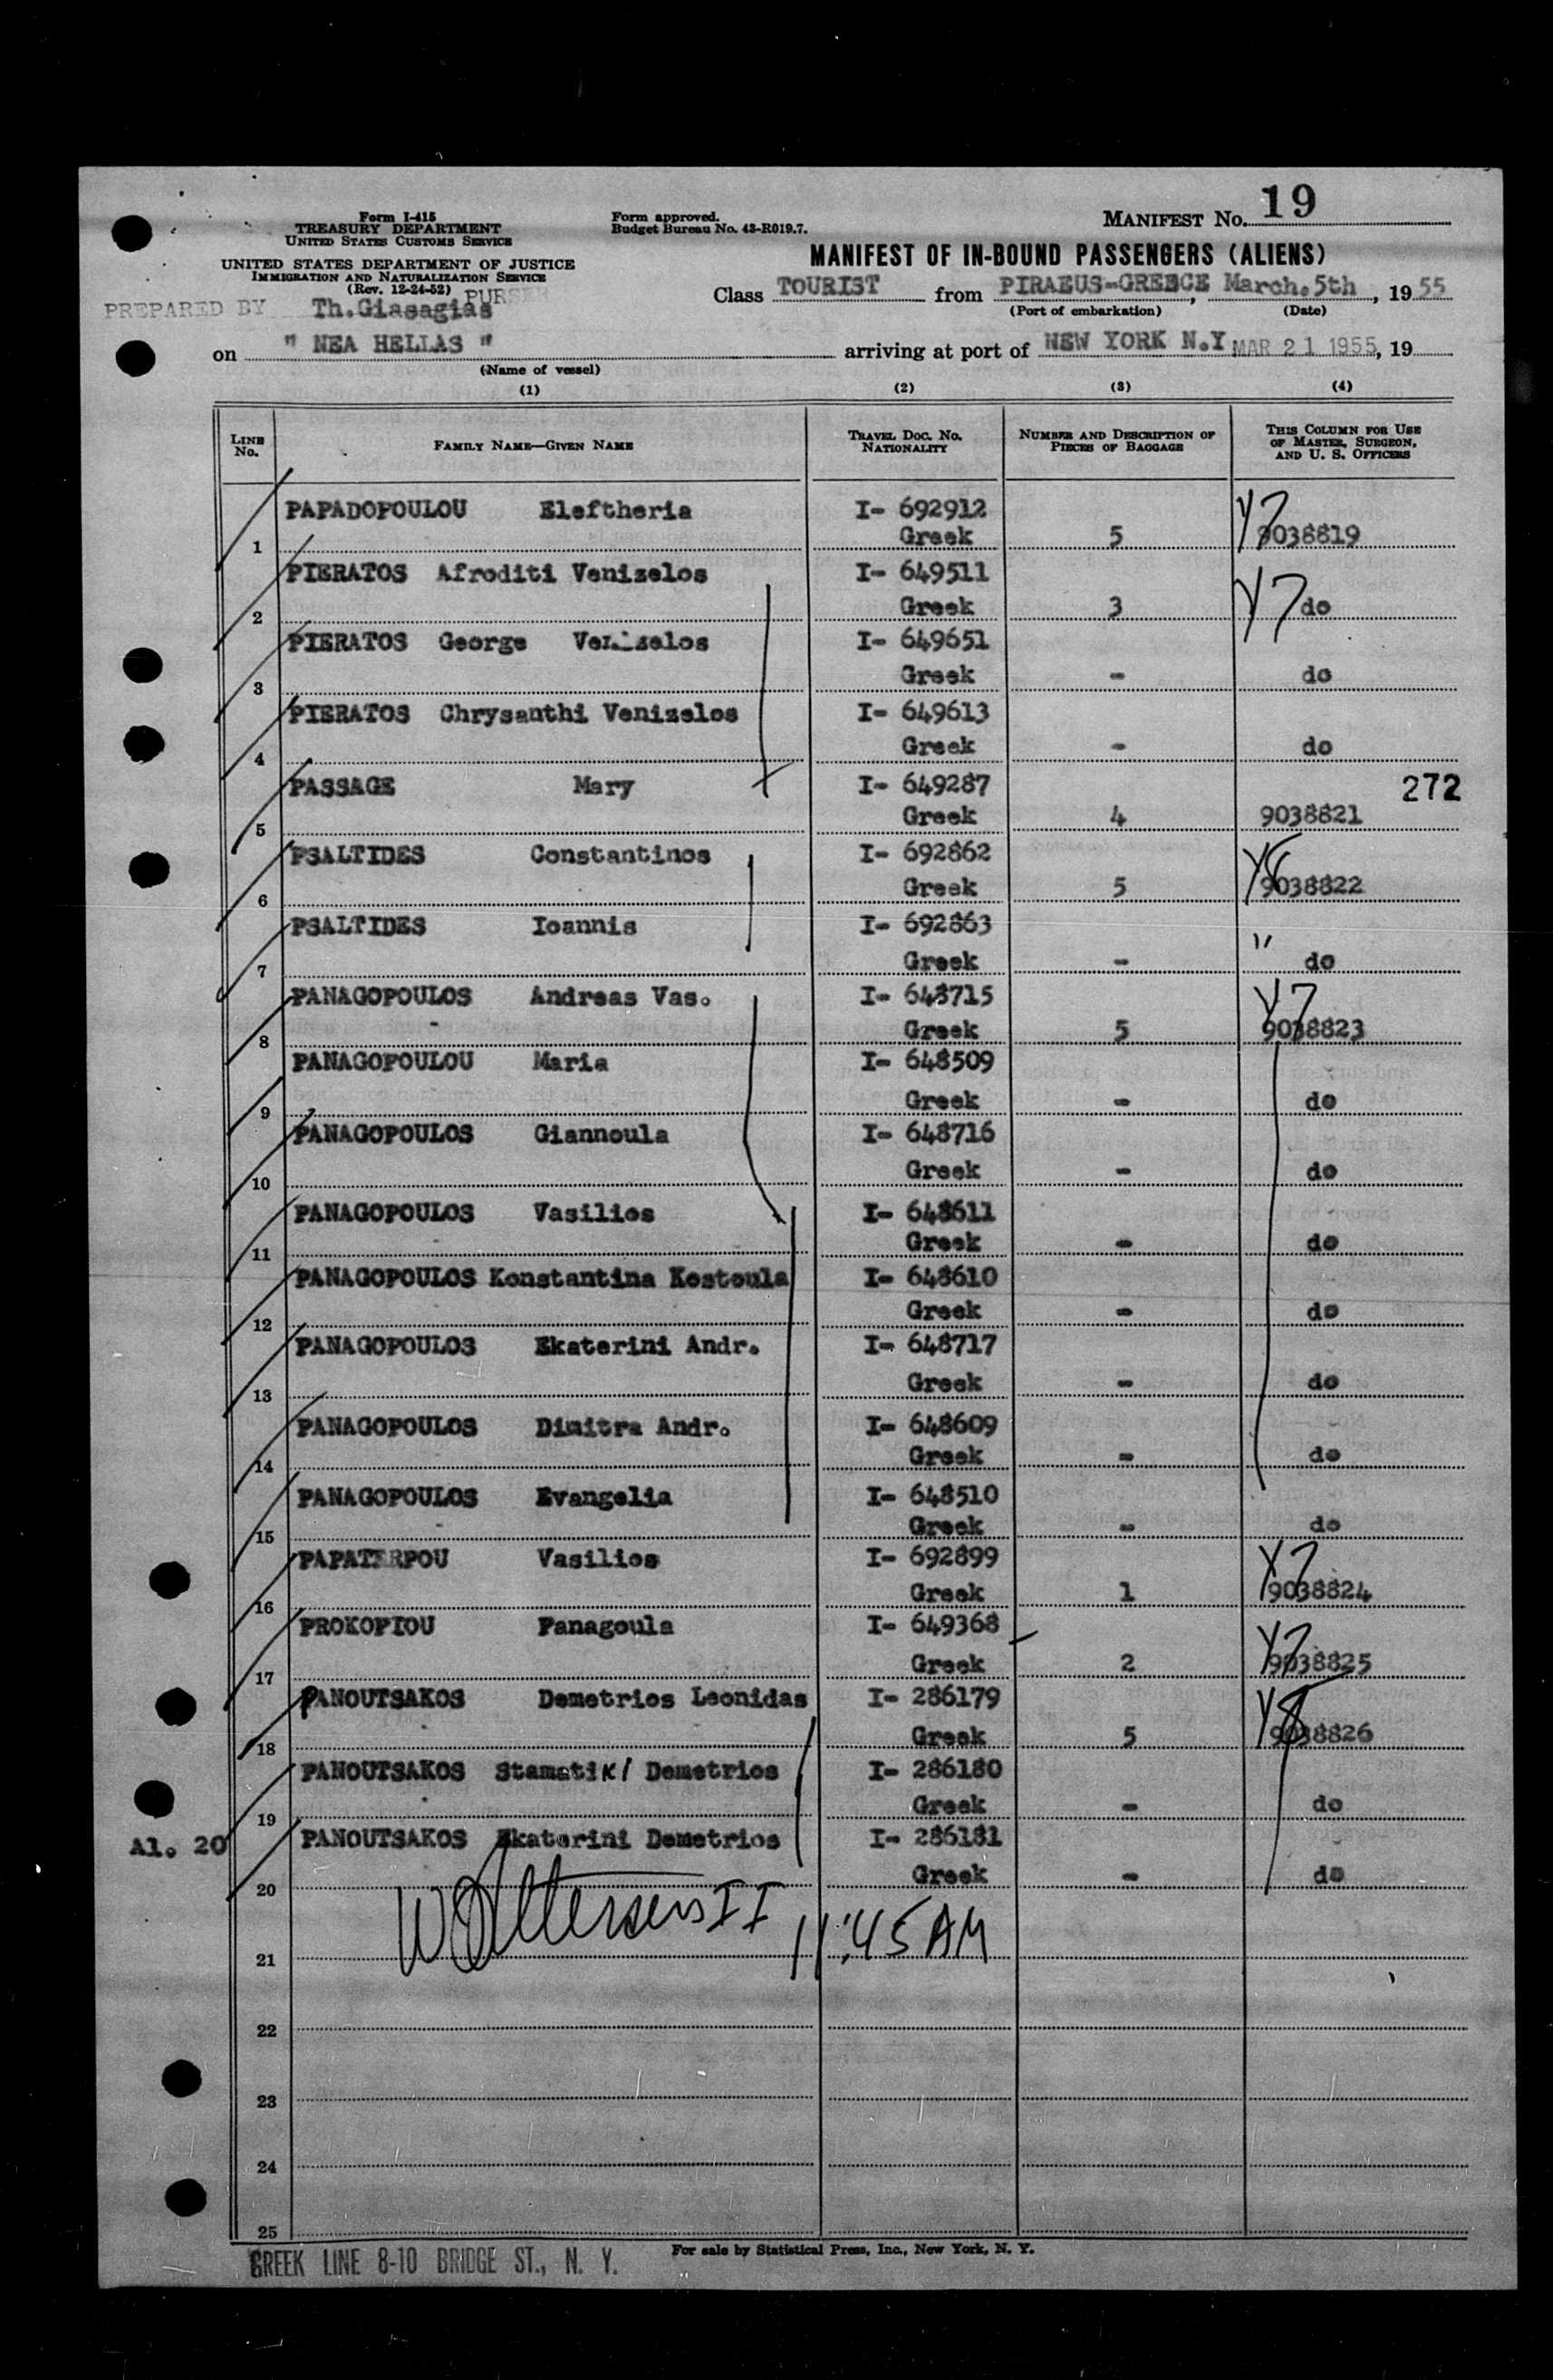 Form I-415
TREASURY DEPARTMENT
UNITED STATES CUSTOMS SERVICE
UNITED STATES DEPARTMENT OF JUSTICE
IMMIGRATION AND NATURALIZATION SERVICE
(Rev. 12-24-52)
Form approved.
Budget Bureau No. 43-R019.7.
MANIFEST NO. 19
MANIFEST OF IN-BOUND PASSENGERS (ALIENS)
PREPARED BY Th.Giasagias PURSER
Class TOURIST from PIRAEUS-GREECE, March.5th, 19 55
(Port of embarkation) (Date)
on " NEA HELLAS " arriving at port of NEW YORK N.Y MAR 21 1955, 19
(Name of vessel)
(1) (2) (3) (4)
LINE NO. FAMILY NAME—GIVEN NAME TRAVEL DOC. NO. NATIONALITY NUMBER AND DESCRIPTION OF PIECES OF BAGGAGE THIS COLUMN FOR USE OF MASTER, SURGEON, AND U. S. OFFICERS
PAPADOPOULOU Eleftheria I- 692912
1 Greek 5 9038819
PIERATOS Afroditi Venizelos I- 649511
2 Greek 3 do
PIERATOS George Venizelos I- 649651
3 Greek - do
PIERATOS Chrysanthi Venizelos I- 649613
4 Greek - do
PASSAGE Mary I- 649287 272
5 Greek 4 9038821
PSALTIDES Constantinos I- 692862
6 Greek 5 9038822
PSALTIDES Ioannis I- 692863 "
7 Greek - do
PANAGOPOULOS Andreas Vas. I- 648715
8 Greek 5 9038823
PANAGOPOULOU Maria I- 648509
9 Greek - do
PANAGOPOULOS Giannoula I- 648716
10 Greek - do
PANAGOPOULOS Vasilios I- 648611
11 Greek - do
PANAGOPOULOS Konstantina Kostoula I- 648610
12 Greek - do
PANAGOPOULOS Ekaterini Andr. I- 648717
13 Greek - do
PANAGOPOULOS Dimitra Andr. I- 648609
14 Greek - do
PANAGOPOULOS Evangelia I- 648510
15 Greek - do
PAPATERPOU Vasilios I- 692899
16 Greek 1 9038824
PROKOPIOU Panagoula I- 649368
17 Greek 2 9038825
PANOUTSAKOS Demetrios Leonidas I- 286179
18 Greek 5 9038826
PANOUTSAKOS Stamatiki Demetrios I- 286180
19 Greek - do
Al. 20 PANOUTSAKOS Ekaterini Demetrios I- 286181
20 Greek - do
11:45 AM
21
22
23
24
25
GREEK LINE 8-10 BRIDGE ST., N. Y.
For sale by Statistical Press, Inc., New York, N. Y.